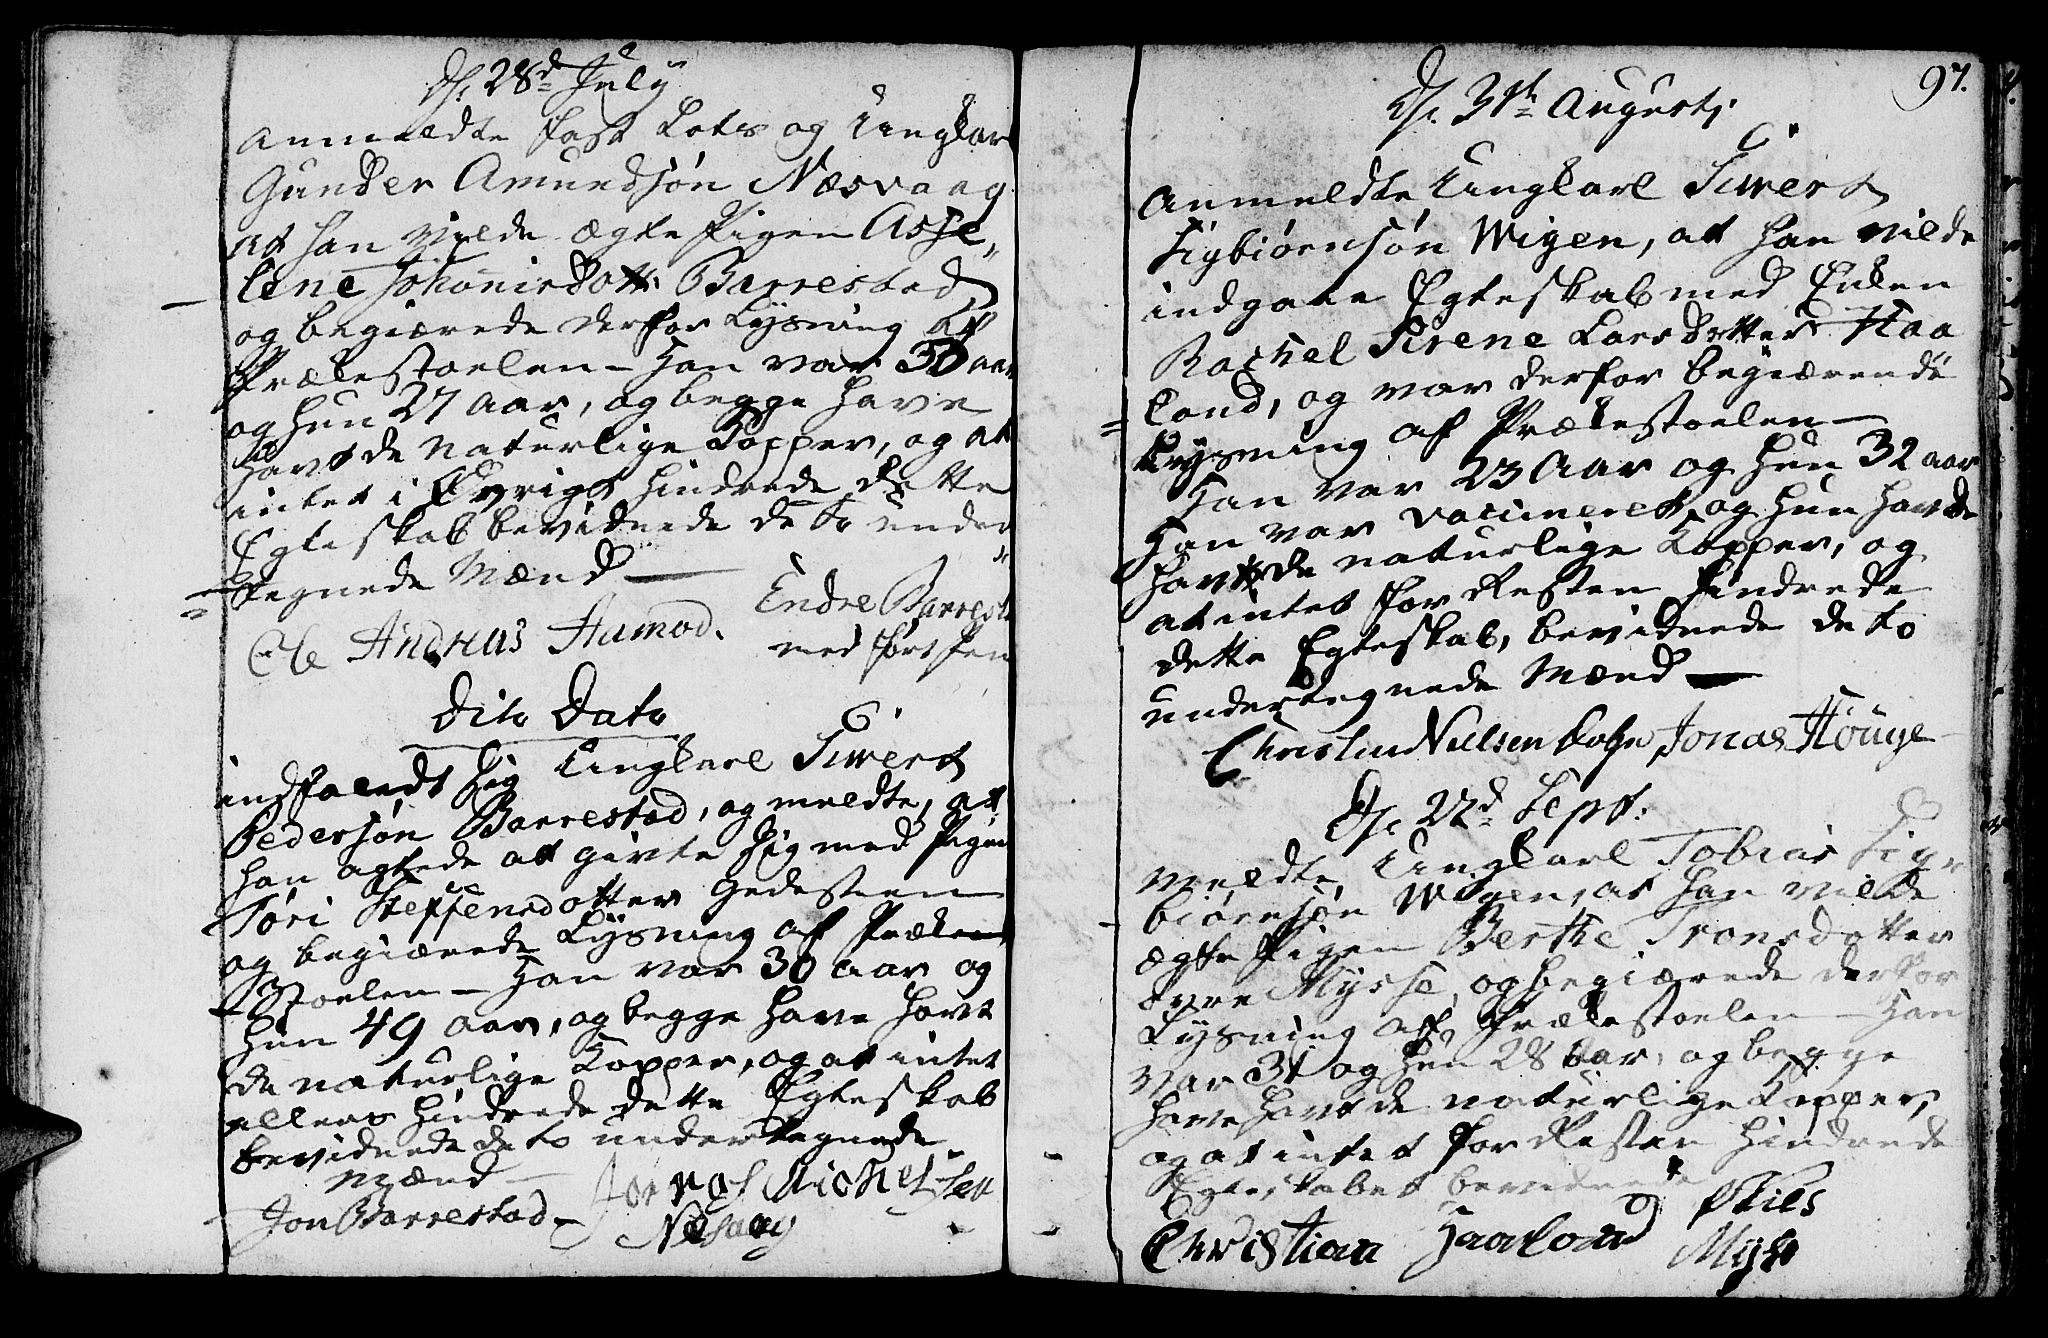 Ds. 28d July
Anmeldte fast Lots og Ungkar
Gunder Amundsøn Næsvaag
at han vilde ægte Pigen Asse„
lene Johannisdott: Barrestad
og begiærede derfor Lysning af
Prækestoelen – Han var 30 aar
og hun 27 aar, og begge have
havt de naturlige Kopper, og at
intet i Øvrigt hindrede dette
Egteskab bevidnede de to under
tegnede Mænd —
Ole Andreas Aamod. Endre Barrest
med ført Pen
Dito Dato
indfandt sig Ungkarl Siwert
Pedersøn Barrestad, og meldte, at
han agtede at givte sig med Pigen
Tøri Steffensdotter Gedesteen
og begiærede Lysning af Præke
Stoelen – Han var 30 aar og
hun 49 aar, og begge have havt
de naturlige Kopper, og at intet
ellers hindrede dette Egteskab
bevidnede de to undertegnede
Mænd –
Jon Barrestad – Michelsen
Nesvaag
97.
Ds. 31th Augustj.
Anmeldte Ungkarl Siwert
Sigbiørnsøn Wigen, at han vilde
indgaae Egteskab med Enken
Rachel Sirene Larsdotter Haa
land, og var derfor begiærende
Lysning af Prækestoelen –
Han var 23 Aar og hun 32 aar
Han var vaccineret, og hun havde
havt de naturlige Kopper, og
at intet for Resten hindrede
dette Egteskab, bevidnede de to
undertegnede Mænd —
Christen Nielsen Jonas Høuge
Ds. 22d Sept:
meldte Ungkarl Tobias Sig„
biørnsøn Wigen, at han vilde
ægte Pigen Berthe Tronsdotter
Øvre Mysse, og begiærede derfor
Lysning af Prækestoelen – Han
var 31 og hun 28 aar, og begge
have havt de naturlige Kopper,
og at intet for Resten hindrede
Egteskabet bevidnede
Christian Haaland Niels
Mysse